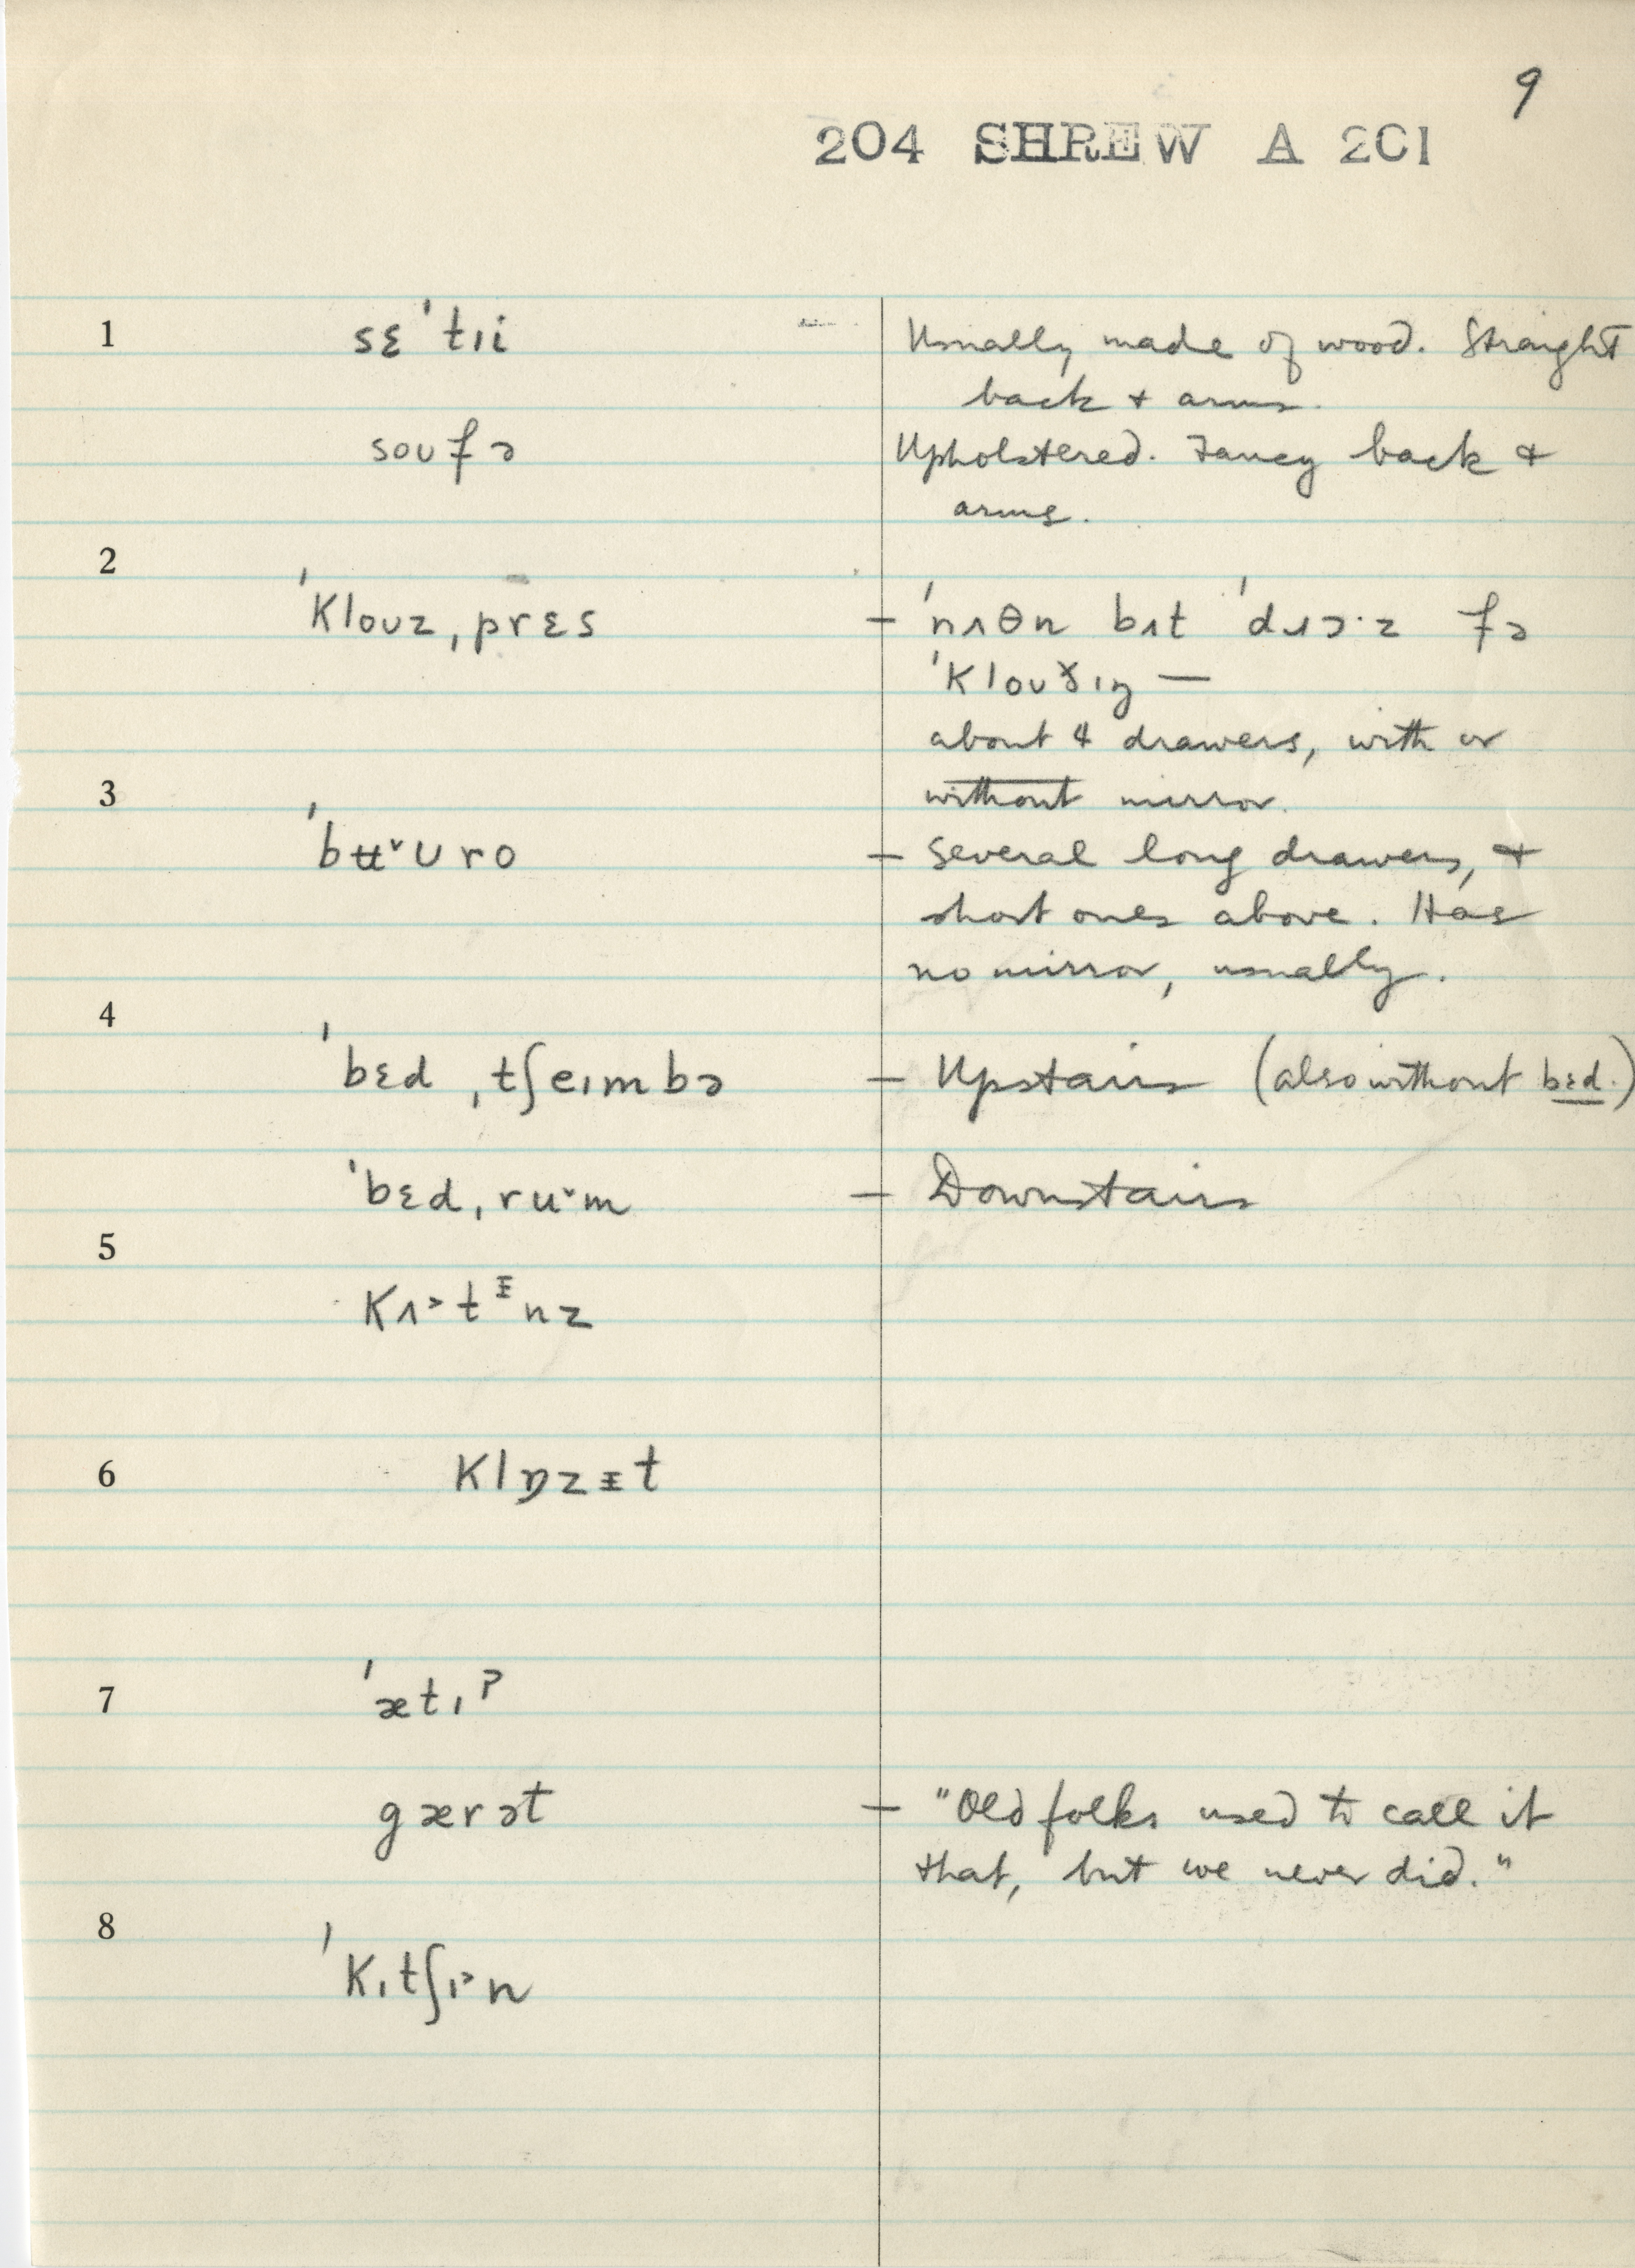 9
204 SHREW A 201
1 sɛˈtɪi Usually made of wood. Straight
back + arms.
soʊfə Upholstered. Fancy back +
arms.
2
ˈklouz,prɛs – ˈnʌθn bʌt ˈdɹɔ·z fə
ˈkloʊðɪŋ —
about 4 drawers, with or
3 without mirror.
ˈbʉ˅ʊro – Several long drawers, +
short ones above. Has
no mirror, usually.
4
ˈbɛd ˌtʃeɪmbə – Upstairs (also without bɛd.)
ˈbɛdˌru˅m – Downstairs
5
kʌ˃tᵻnz
6 klɒzᵻt
7 ˈætɪˀ
gærət – "Old folks used to call it
that, but we never did."
8
ˈkɪtʃɪ˃n